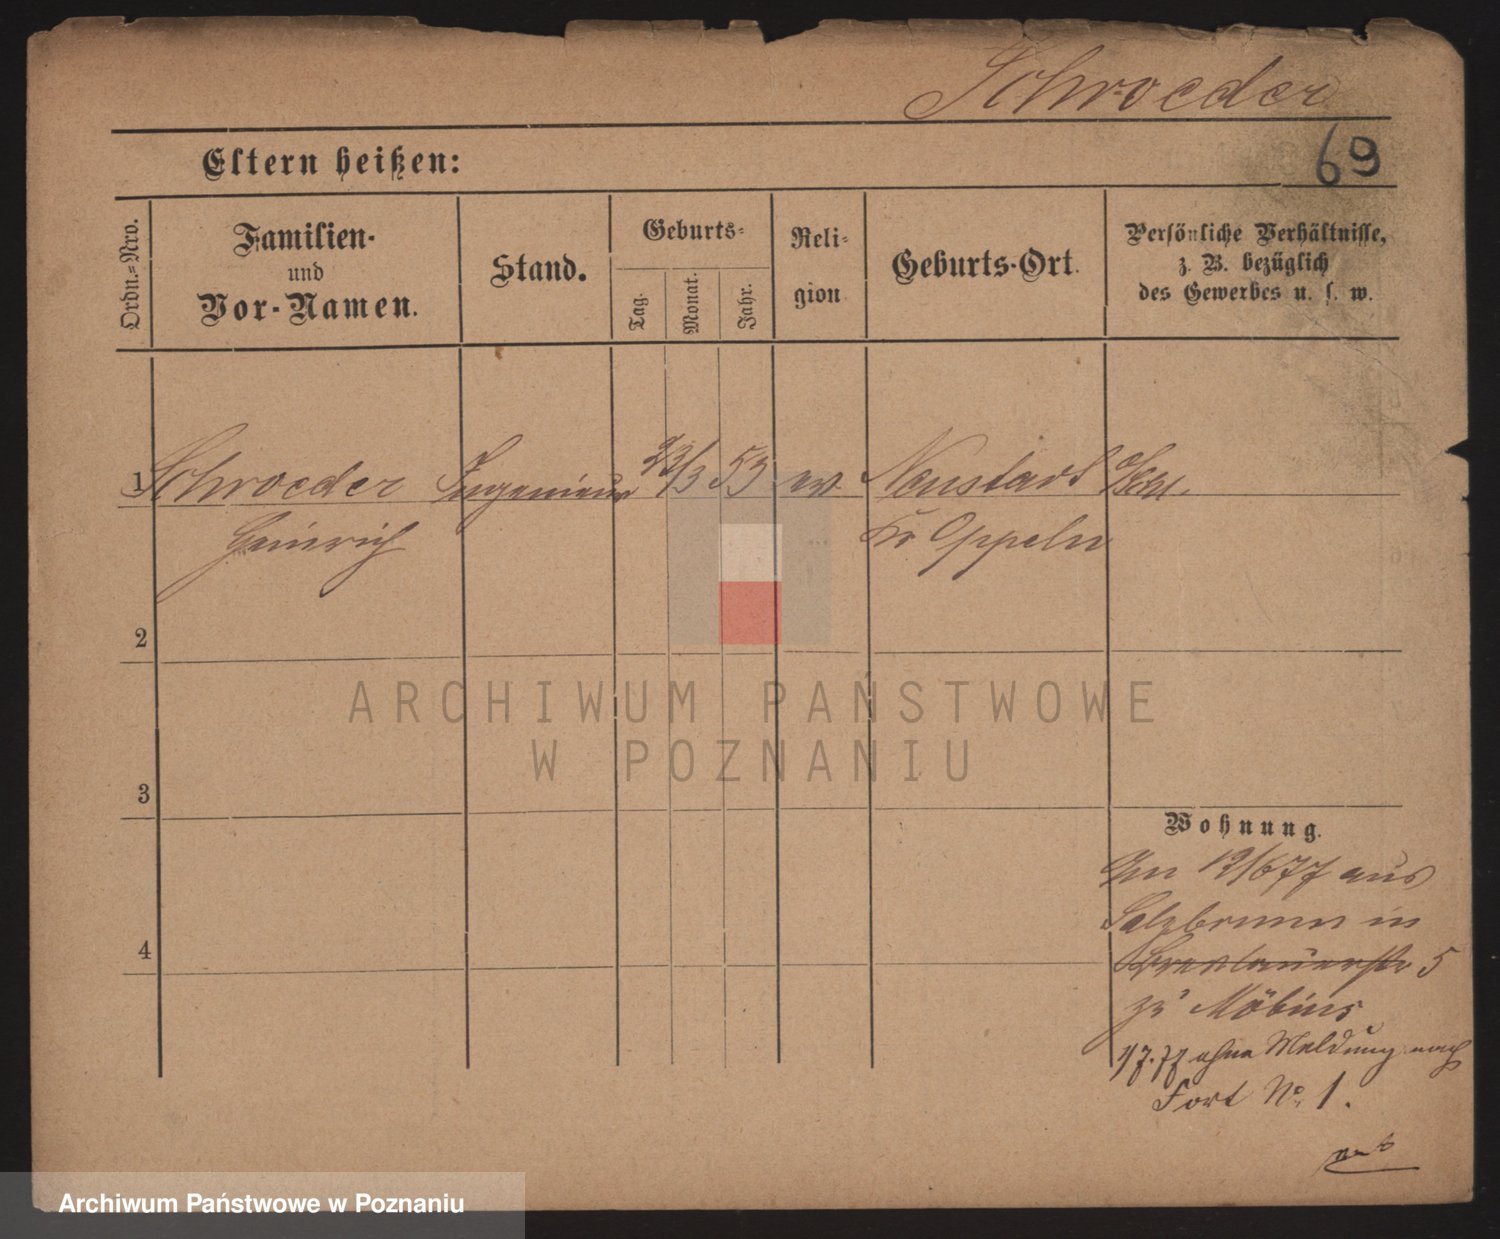 Schroeder
69
Eltern heißen:
Ordn.-Nro.
Familien-
und
Vor-Namen.
Stand.
Geburts-
Tag.
Monat.
Jahr.
Reli-
gion
Geburts-Ort.
Persönliche Verhältnisse,
z. B. bezüglich
des Gewerbes u. s. w.
1 Schroeder Ingenieur 23/3 53 ev Neustadt o/Schl.
Heinrich Kr Oppeln
2
3
4
Wohnung.
An 12/6 77 aus
Salzbrunn in
Breslauerstr 5
zu Möbius
1/7.77 ohne Meldung nach
Fort No. 1.
ARCHIWUM PAŃSTWOWE
W POZNANIU
Archiwum Państwowe w Poznaniu